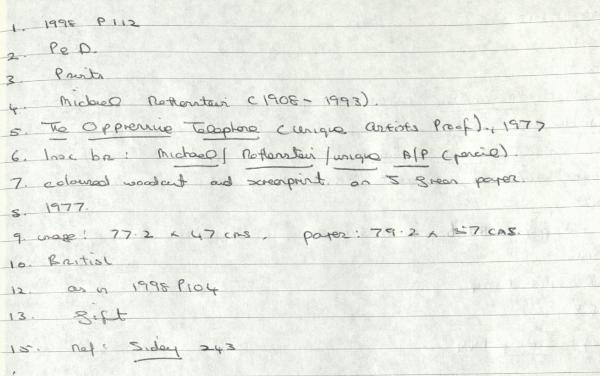 1. 1998 P112
2. P & D.
3 Prints
4. Michael Rothenstein (1908 - 1993).
5. The Oppressive Telephone (unique artists Proof)., 1977
6. Insc br: Michael / Rothenstein / unique A/P (pencil).
7. coloured woodcut and screenprint. on J green paper.
8. 1977.
9. image: 77.2 x 47 cms. paper: 79.2 x 57 cms.
10. British
12. as in 1998 P104
13. gift
15. ref: Sidey 243